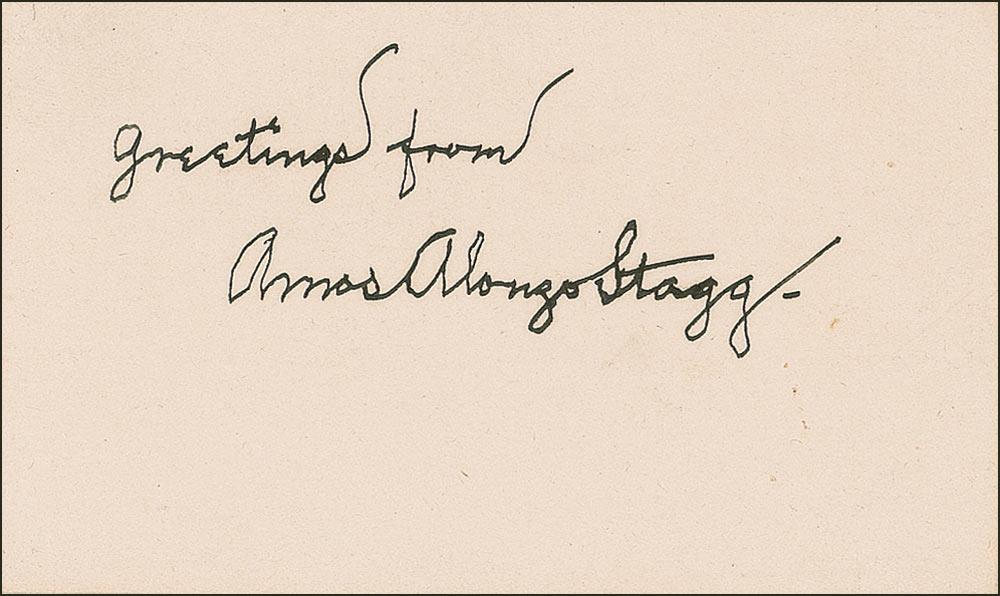 Greetings from
Amos Alonzo Stagg -